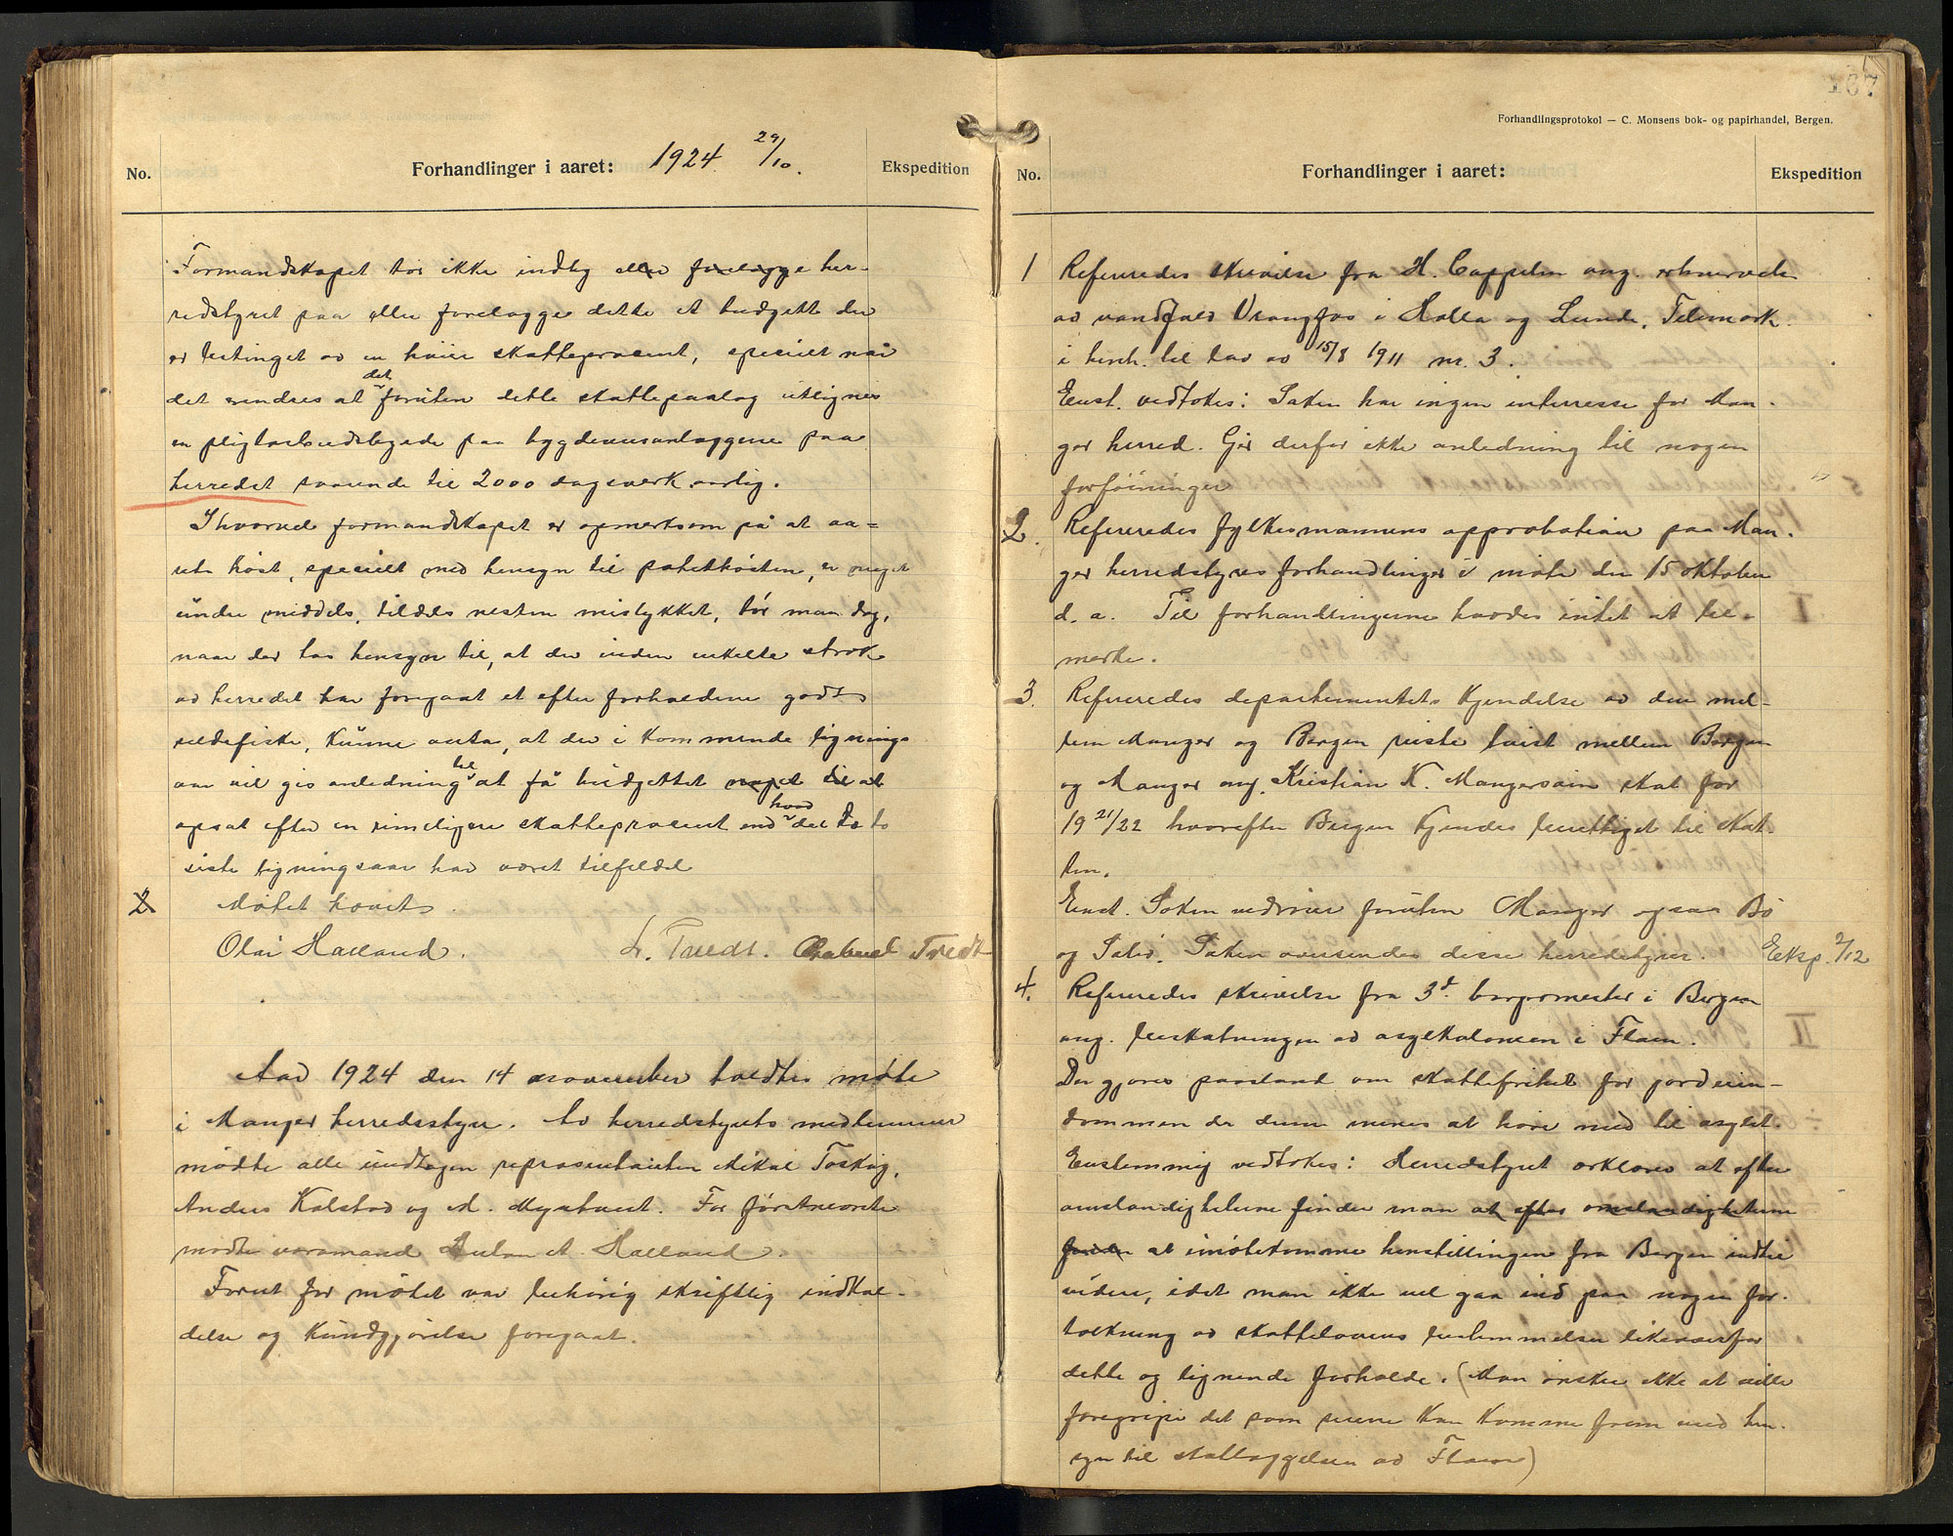 No.
Forhandlinger i aaret: 1924 29/10.
Ekspedition
Formandskapet tør ikke indby eller forelægge her-
redstyret paa eller forelægge dette et budgett der
er betinget av en høiere skatteprocent, specielt naar
det endses at det foruten dette skattepaalæg utlignes
en pligtarbeidsbyrde paa bygdeveisanlæggene paa
herredet svarende til 2000 dagsverk aarlig.
I hvorvel formandskapet er opmerksom på at aa-
rets høst, specielt med hensyn til potethøsten, er meget
under middels, tildels nesten mislykket, tør man dog,
naar der tas hensyn til, at der inden enkelte strøk
av herredet har foregaat et efter forholdene godt
sildefiske, kunne anta, at der i kommende lignings-
aar vil gis anledning til at få budgettet noget til at
opsat efter en rimeligere skatteprocent end hvad det de to
siste ligningsaar har været tilfældet
2 Møtet hævet.
Olai Halland. L. Tredt. Gabriel Tredt
Aar 1924 den 14 november holdtes møte
i Manger herredsstyre. Av herredstyrets medlemmer
mødte alle undtagen repræsentanten Mikal Toskag,
Anders Kolstad og M. Myrtveit. For førstnevnte
mødte varamand Anton A. Halland.
Forut for møtet var behørig skriftlig indkal-
delse og kundgjørelse foregaat.
167
Forhandlingsprotokol — C. Monsens bok- og papirhandel, Bergen.
No.
Forhandlinger i aaret:
Ekspedition
1 Refereredes skrivelse fra H. Cappelen ang. erhvervelse
av vandfald Vrangfos i Holla og Lunde, Telemark.
i henh. til lov av 15/8 1911 nr. 3.
Enst. vedtokes: Saken har ingen interresse for Man-
ger herred. Gir derfor ikke anledning til nogen
forføininger
2. Refereredes fylkesmannens approbation paa Man-
ger herredstyres forhandlinger i møte den 15 oktober
d. a. Til forhandlingerne havdes intet at be-
merke.
3. Refereredes departementets kjendelse av den mel-
lem Manger og Bergen reiste tvist mellem Bergen
og Manger ang. Kristian K. Mangersnes skat for
19 21/22 hvorefter Bergen kjendes berettiget til skat-
ten.
Enst. Saken vedrører foruten Manger ogsaa Bø
og Sæbø. Saken oversendes disse herredstyrer. Eksp. 2/12
4. Refereredes skrivelse fra 3d. borgermester i Bergen
ang. beskatningen av asylkolonien i Floen.
Der gjøres paastand om skattefrihet for jordeien-
dommen da denne menes at høre med til asylet.
Enstemmig vedtokes: Herredstyret erklærer at efter
omstændighetene finder man at efter omstændighetene
finder at imøtekomme henstillingen fra Bergen indtil
videre, idet man ikke vil gaa ind paa nogen for-
tolkning av skattelovens bestemmelser likeoverfor
dette og lignende forholde. (Man ønsker ikke at ville
foregripe det som senere kan komme frem med hen-
syn til skatlæggelsen av Floen)